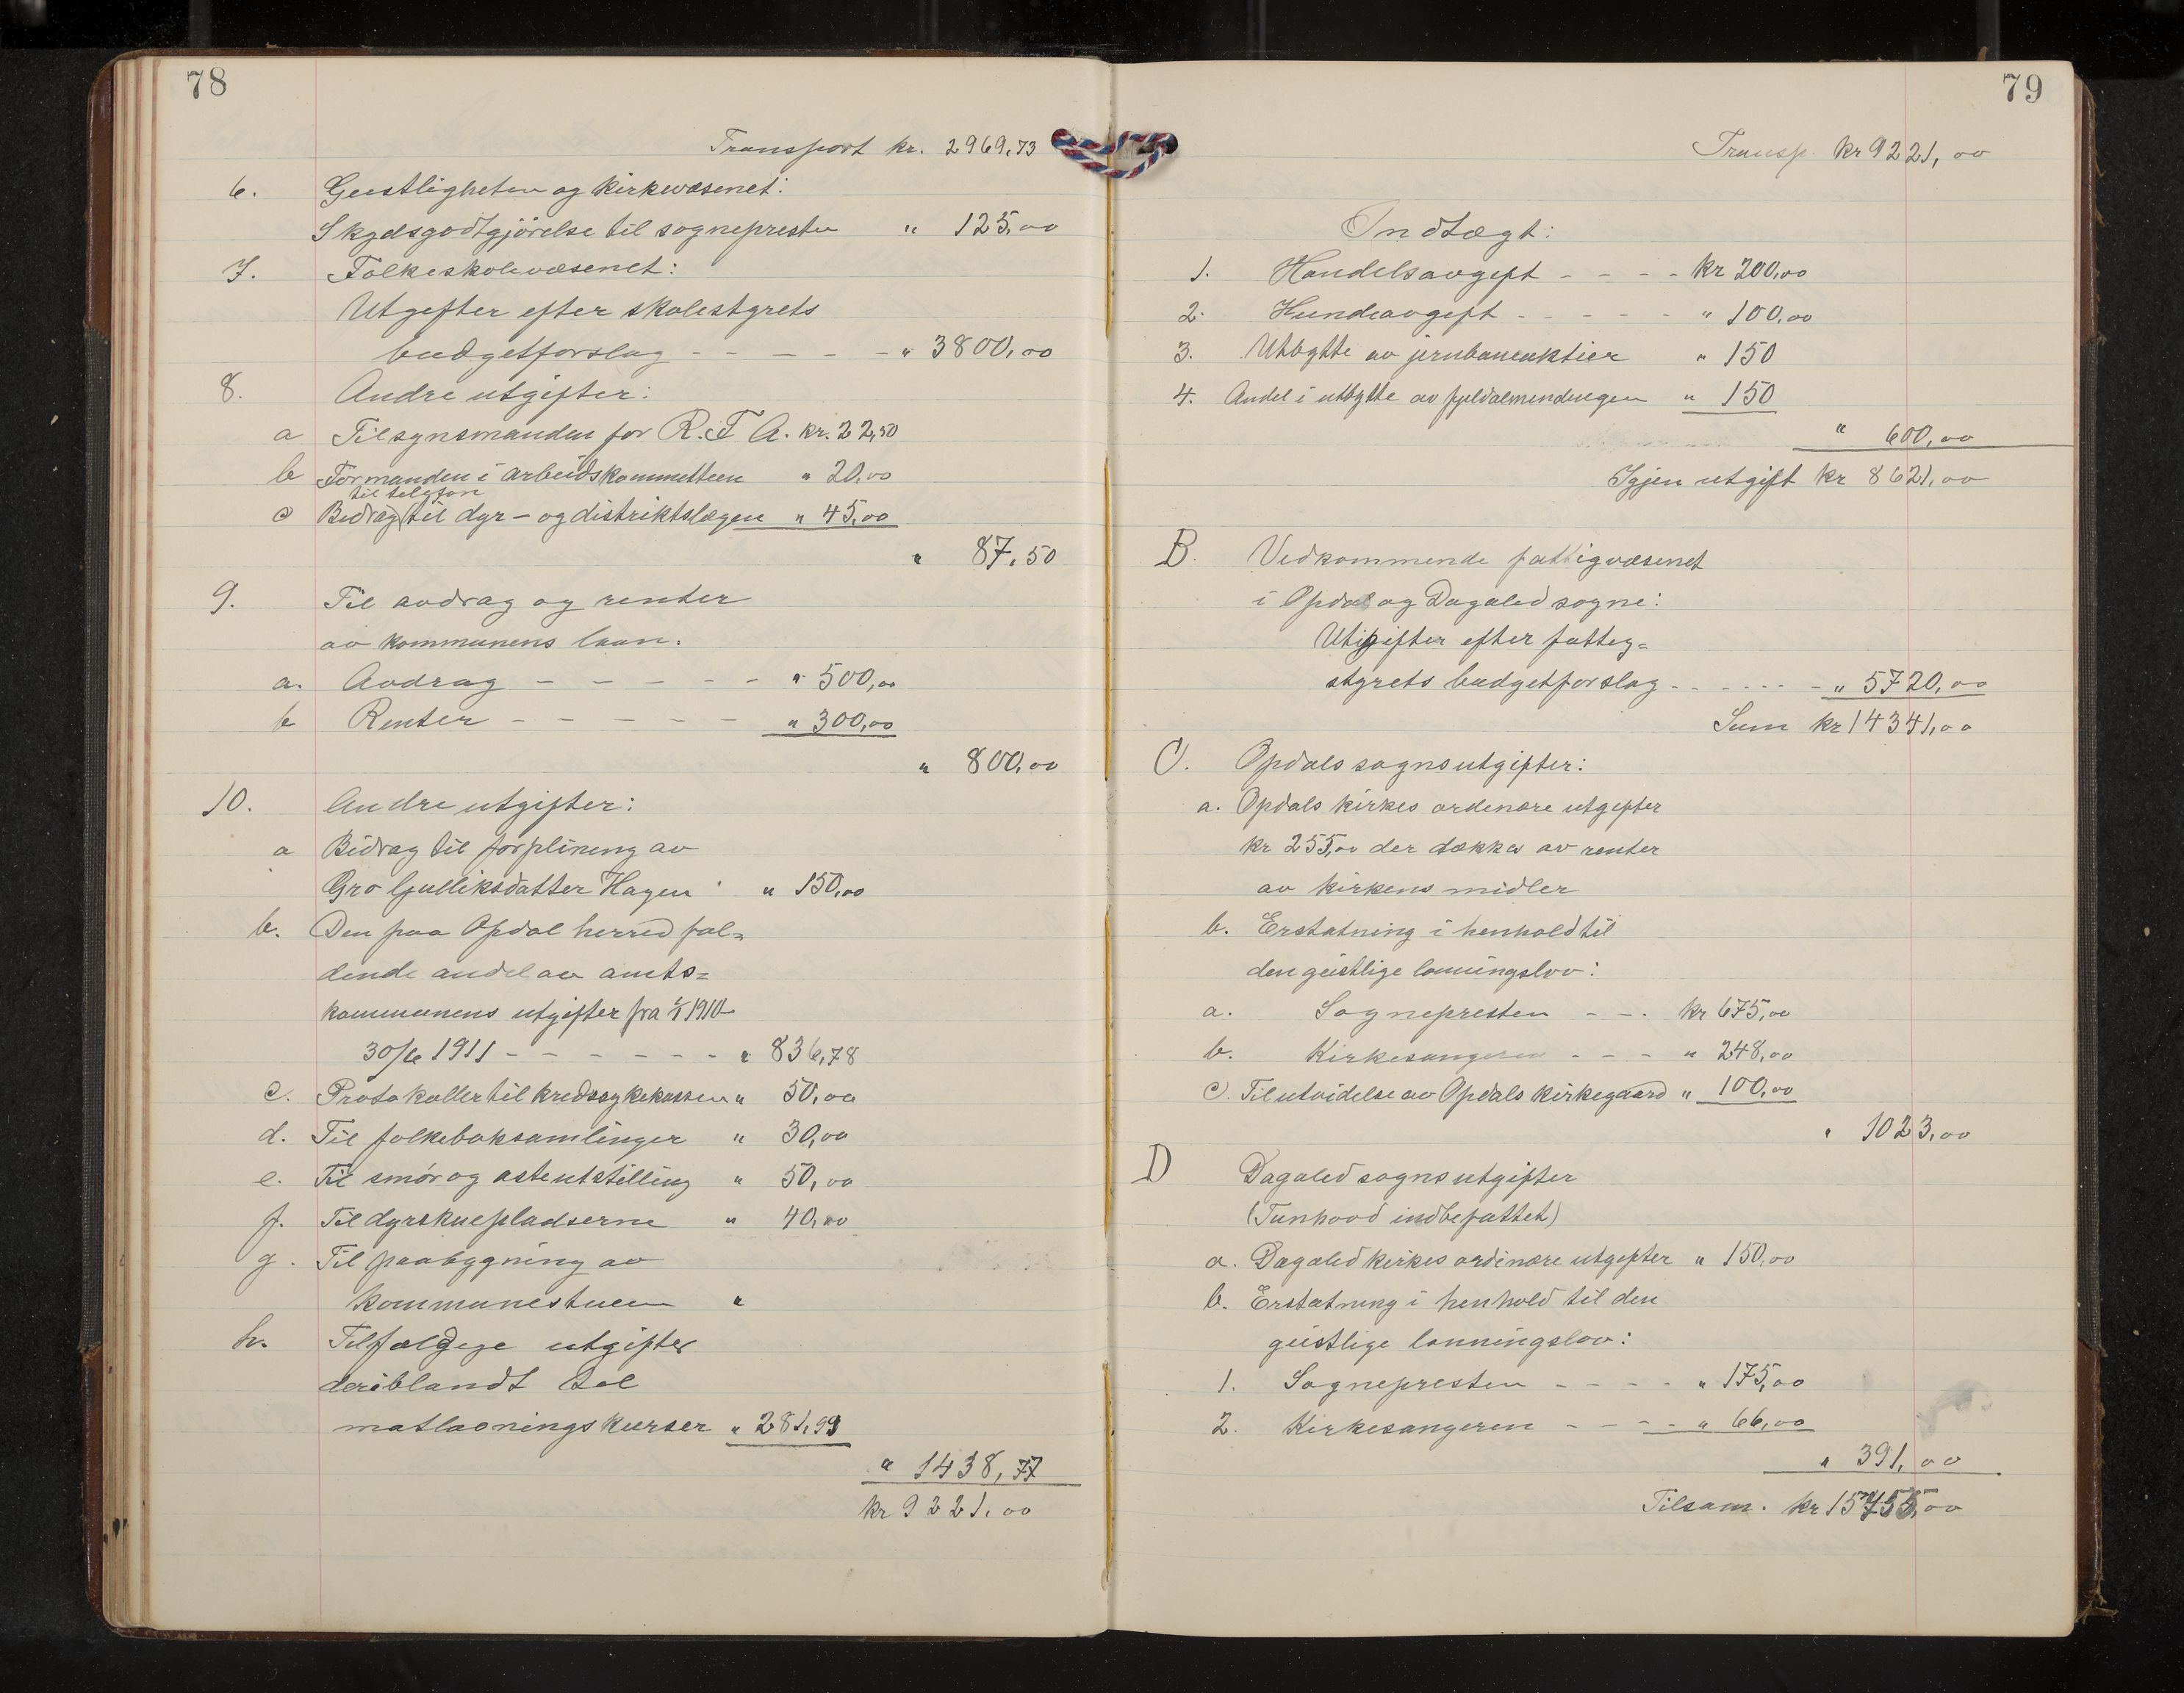 78
Transport kr. 2969,73
6. Geistligheten og kirkevæsenet:
Skydsgodtgjörelse til sognepresten " 125,00
7. Folkeskolevæsenet:
Utgifter efter skolestyrets
budgetforslag - - - - - " 3800,00
8. Andre utgifter:
a Tilsynsmanden for R. F. A. kr. 22,50
b Formanden i arbeidskommitteen " 20,00
til telefon
c Bidrag til dyr- og distriktslægen " 45,00
" 87,50
9. Til avdrag og renter
av kommunens laan.
a. Avdrag - - - - - " 500,00
b Renter - - - - - " 300,00
" 800,00
10. Andre utgifter:
a Bidrag til forpleining av
Gro Gulliksdatter Hagen " 150,00
b. Den paa Opdal herred fal=
dende andel av amts=
kommunens utgifter fra 1/1 1910-
30/6 1911 - - - - - - - " 836,78
c. Protokoller til kredssykekassen " 50,00
d. Til folkeboksamlinger " 30,00
e. Til smör og osteutstilling " 50,00
f. Til dyrskuepladserne " 40,00
g. Til paabygning av
kommunestuen "
h. Tilfældige utgifter
deriblandt til
matlavningskurser " 281,99
" 1438,77
kr 9221,00
79
Transp. kr 9221,00
Indtægt:
1. Handelsavgift - - - - kr 200,00
2. Hundeavgift - - - - - " 100,00
3. Utbytte av jernbaneaktier " 150
4. Andel i utbytte av fjeldalmendingen " 150
" 600,00
Igjen utgift kr 8621,00
B. Vedkommende fattigvæsenet
i Opdal og Dagalid sogne:
Utgifter efter fattig=
styrets budgetforslag - - - - - - " 5720,00
Sum kr 14341,00
C. Opdals sognsutgifter:
a. Opdals kirkes ordenære utgifter
kr 255,00 der dækkes av renter
av kirkens midler
b. Erstatning i henhold til
den geistlige lönningslov:
a. Sognepresten - - - kr 675,00
b. Kirkesangeren - - - " 248,00
c. Til utvidelse av Opdals kirkegaard " 100,00
" 1023,00
D Dagalid sognsutgifter
(Tunhovd indbefattet)
a. Dagalid kirkes ordinære utgifter " 150,00
b. Erstatning i henhold til den
geistlige lönningslov:
1. Sognepresten - - - - " 175,00
2. Kirkesangeren - - - - " 66,00
" 391,00
Tilsam. kr 15755,00